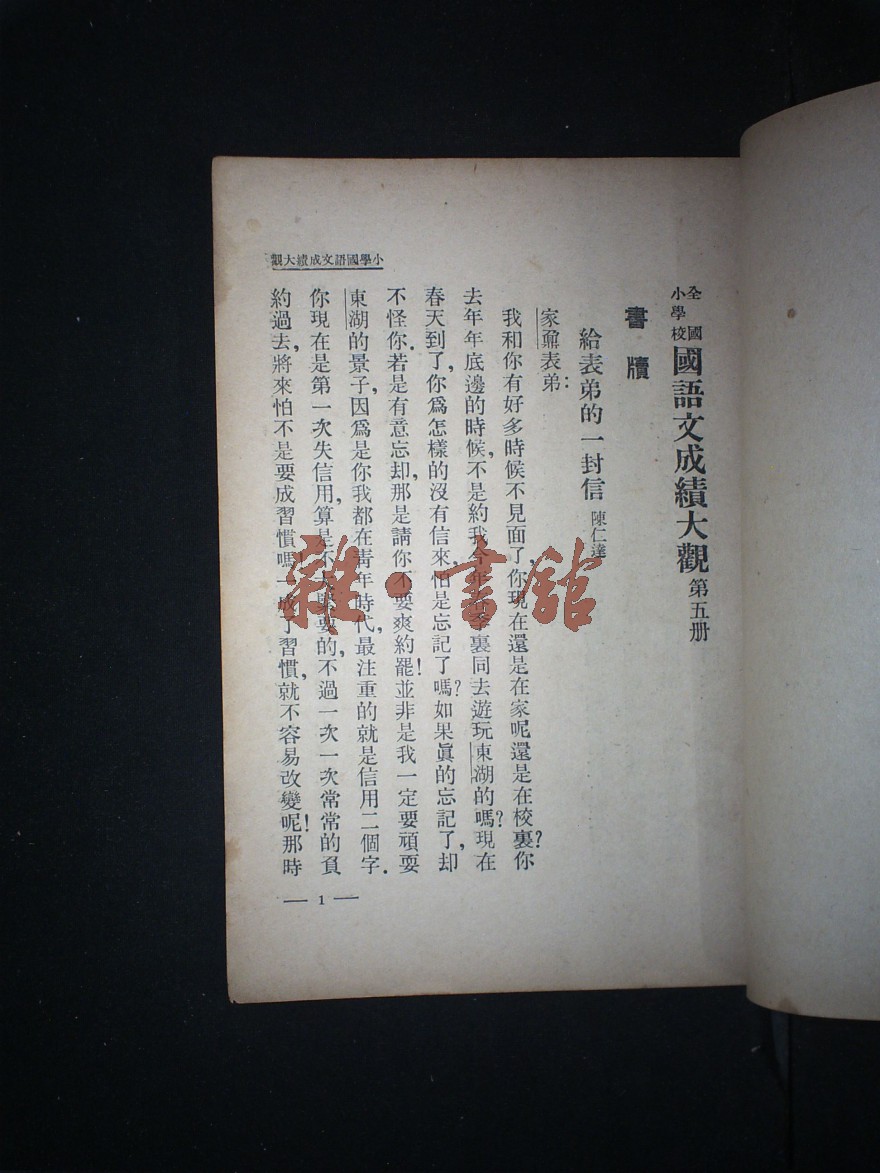 全國
小學校
國語文成績大觀 第五册
書牘
給表弟的一封信 陳仁達
家鼐表弟：
我和你有好多時候不見面了，你現在還是在家呢還是在校裏？你
去年年底邊的時候，不是約我今年春季裏同去遊玩東湖的嗎？現在
春天到了，你爲怎樣的沒有信來，怕是忘記了嗎？如果眞的忘記了，却
不怪你．若是有意忘却，那是請你不要爽約罷！並非是我一定要頑耍
東湖的景子，因爲是你我都在靑年時代，最注重的就是信用二個字．
你現在是第一次失信用，算是不大緊要的，不過一次一次常常的負
約過去，將來怕不是要成習慣嗎！一成了習慣，就不容易改變呢！那時
小學國語文成績大觀
— 1 —
雜·書舘